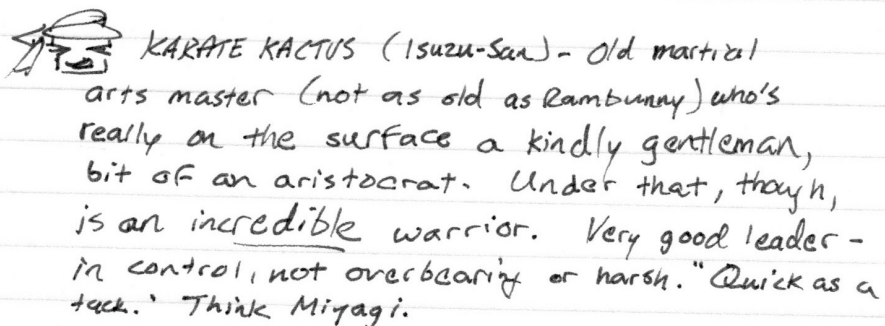 KARATE KACTUS (Isuzu-San) - Old martial
arts master (not as old as Rambunny) who's
really on the surface a kindly gentleman,
bit of an aristocrat. Under that, though,
is an incredible warrior. Very good leader -
in control, not overbearing or harsh. "Quick as a
tack." Think Miyagi.